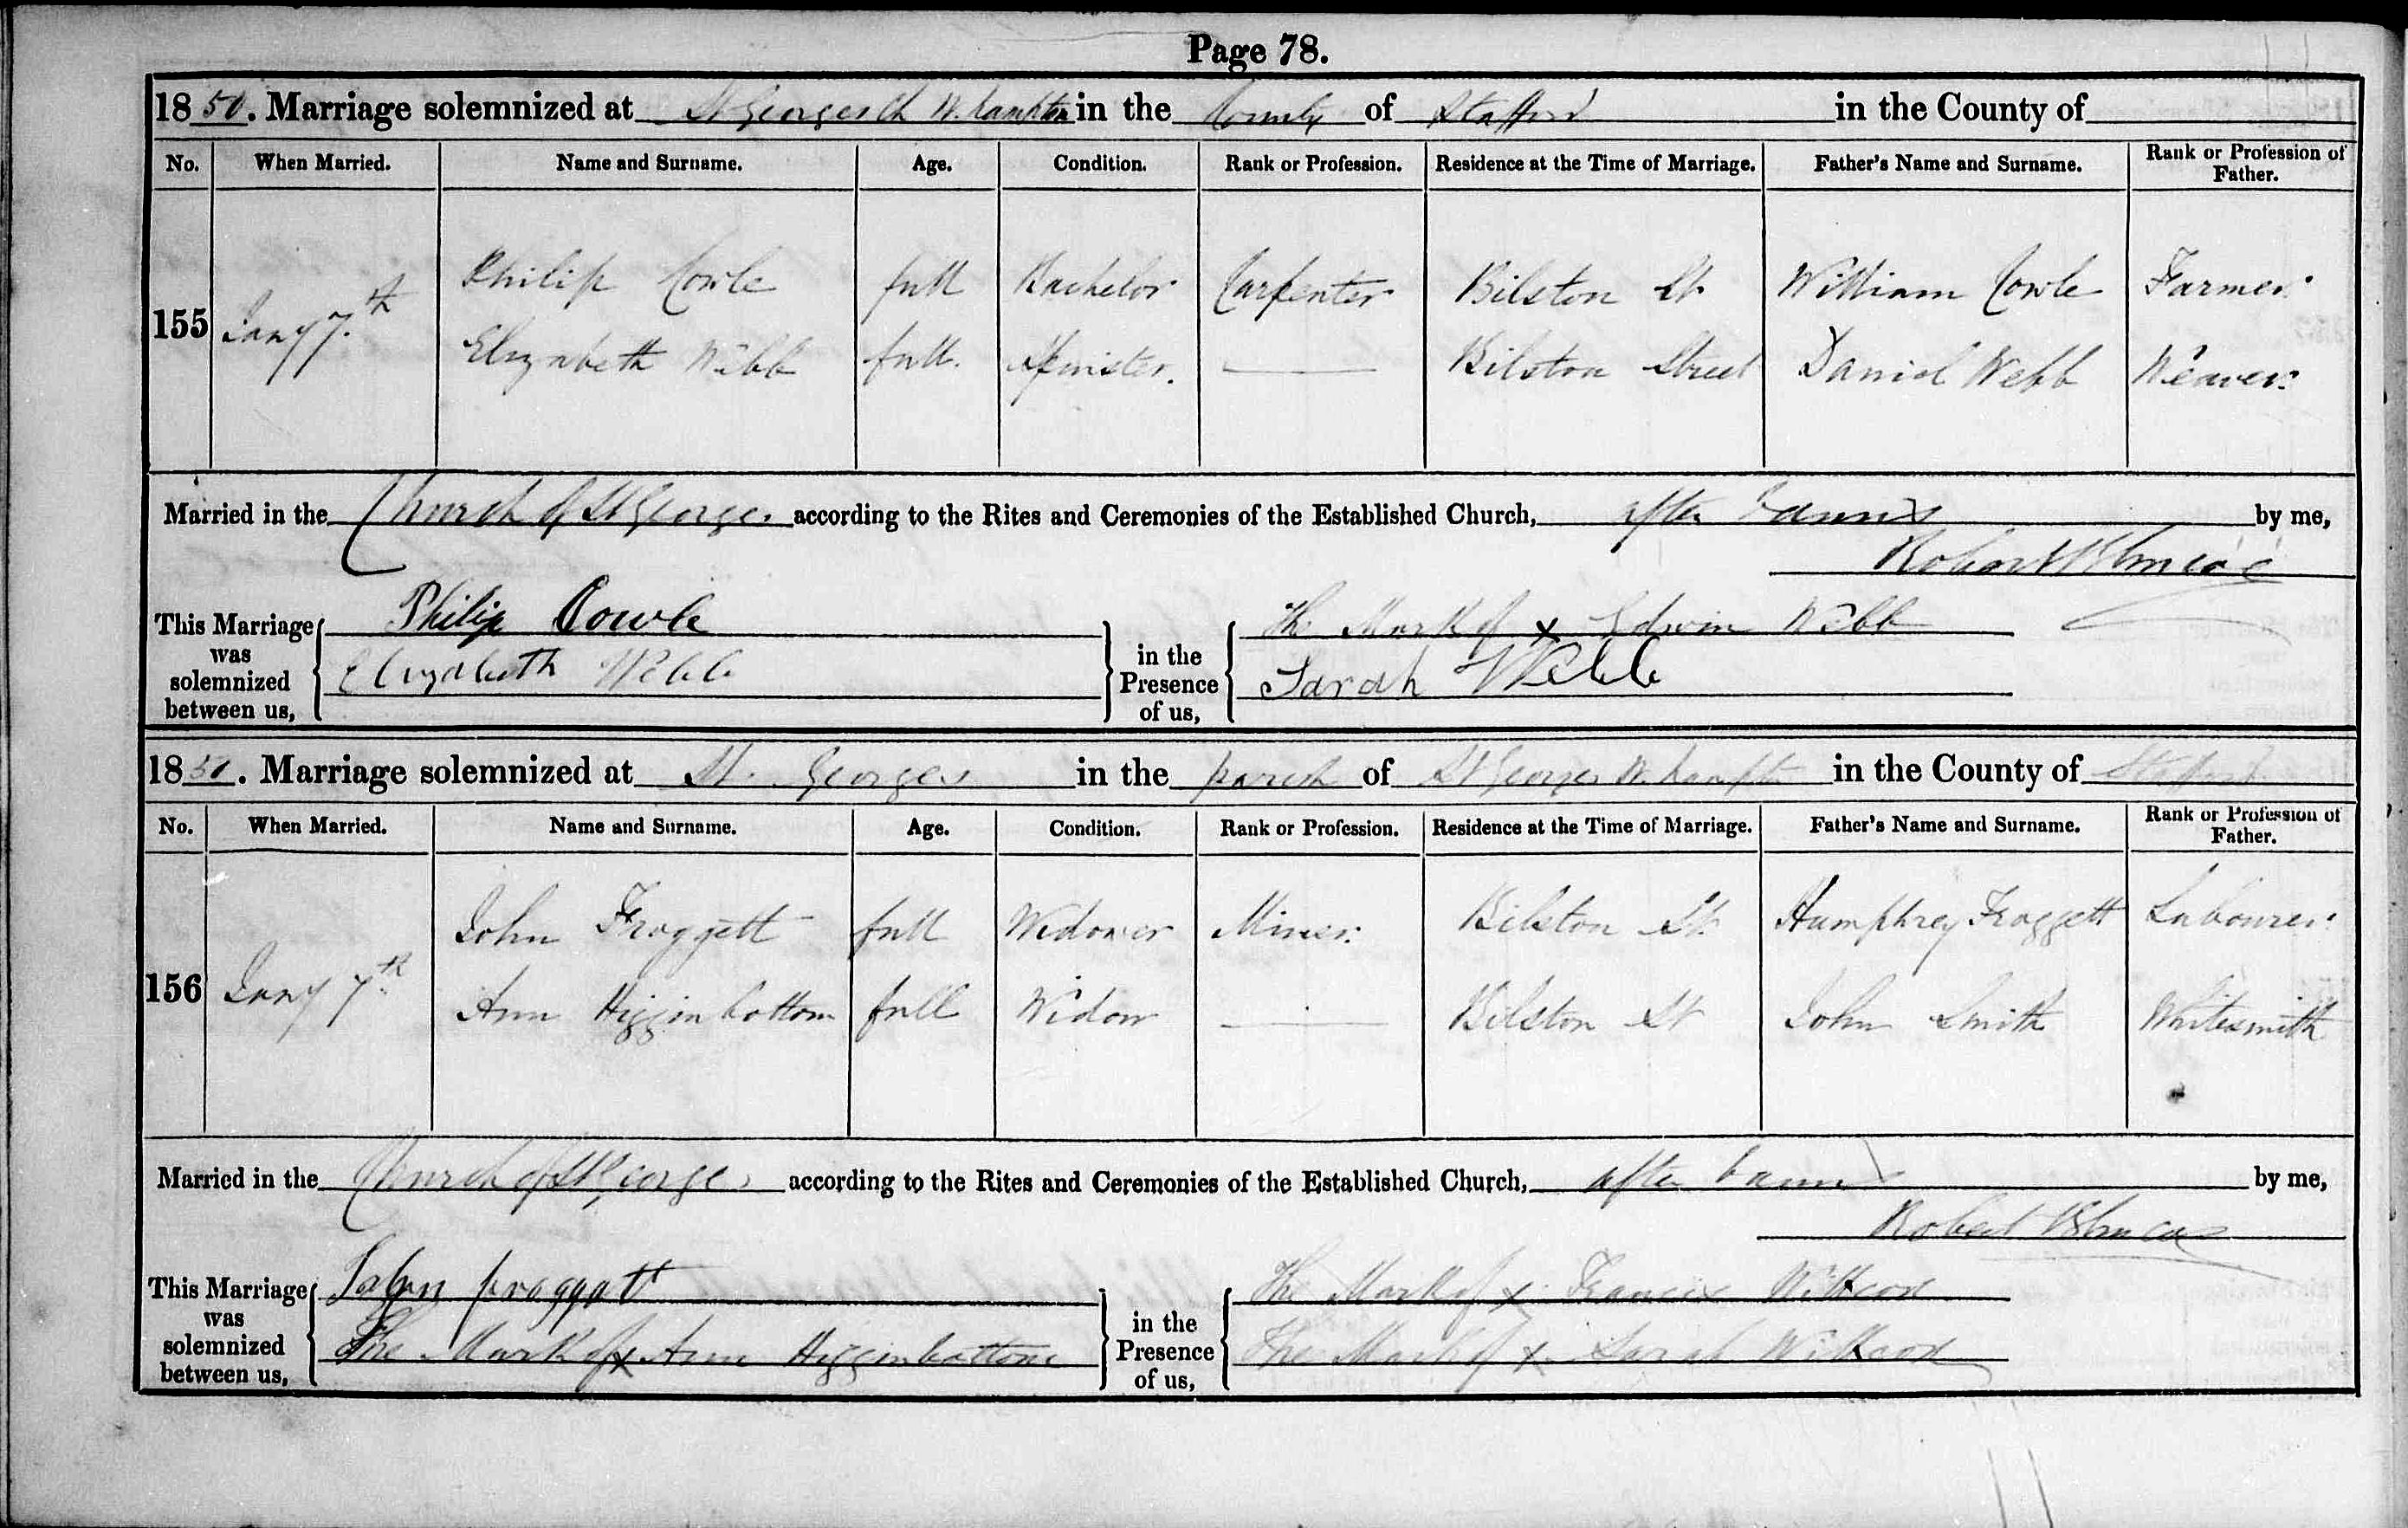 Page 78.
1850. Marriage solemnized at St Georges Ch W.hampton in the County of Stafford in the County of
No. When Married. Name and Surname. Age. Condition. Rank or Profession. Residence at the Time of Marriage. Father's Name and Surname. Rank or Profession of Father.
Philip Cowle full Bachelor Carpenter Bilston St William Cowle Farmer.
155 Jany 7.th
Elizabeth Webb full. Spinster. Bilston Street Daniel Webb Weaver.
Married in the Church of St George according to the Rites and Ceremonies of the Established Church, after banns by me,
Robert
This Marriage was solemnized between us, Philip Cowle in the Presence of us, The Mark of x Edwin Webb
Elizabeth Webb Sarah Webb
1850. Marriage solemnized at St. Georges in the parish of St Georges W.hampton in the County of Stafford
No. When Married. Name and Surname. Age. Condition. Rank or Profession. Residence at the Time of Marriage. Father's Name and Surname. Rank or Profession of Father.
John Froggett full Widower Miner. Bilston St. Humphrey Froggett Labourer.
156 Jany 7th
Ann Higginbottom full Widow Bilston St John Smith Whitesmith
Married in the Church of St George according to the Rites and Ceremonies of the Established Church, after banns by me,
Robert
This Marriage was solemnized between us, John froggatt in the Presence of us, The Mark of x Francis Willcox
The Mark of x Ann Higginbottom The Mark of x Sarah Willcox